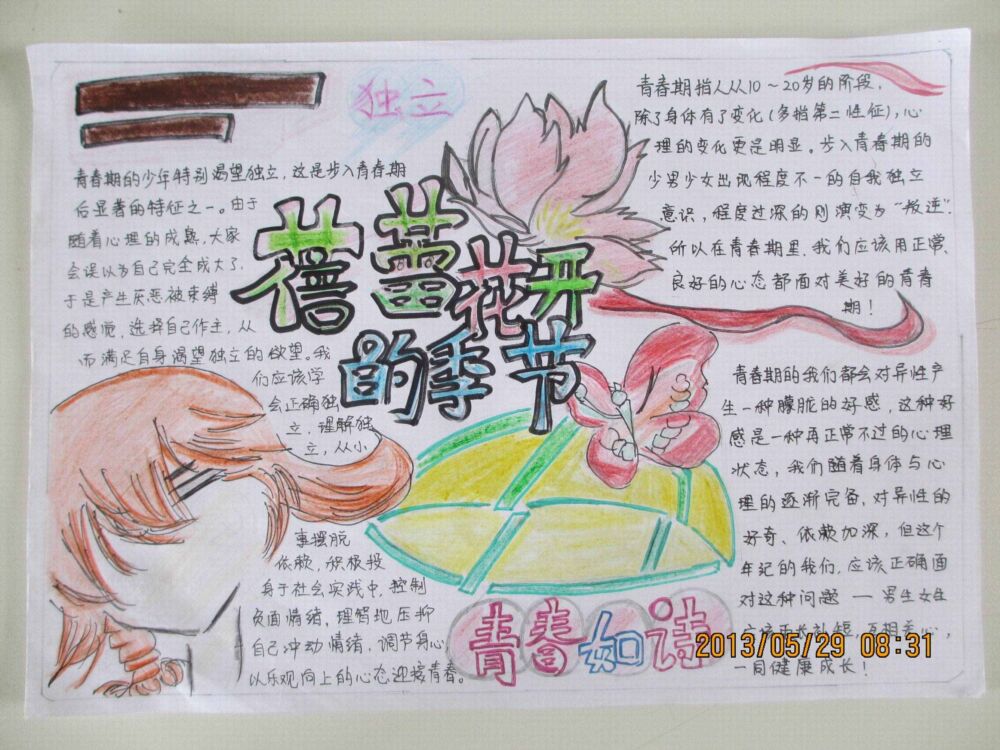 独立
青春期的少年特别渴望独立，这是步入青春期
后显著的特征之一。由于
随着心理的成熟，大家
会误以为自己完全成大了，
于是产生厌恶被束缚
的感觉，选择自己作主，从
而满足自身渴望独立的欲望。我
们应该学
会正确独
立，理解独
立，从小
事摆脱
依赖，积极投
身于社会实践中，控制
负面情绪，理智地压抑
自己冲动情绪，调节身心，
以乐观向上的心态迎接青春。
蓓蕾花开
的季节
青春期指人从10～20岁的阶段，
除了身体有了变化(多指第二性征)，心
理的变化更是明显。步入青春期的
少男少女出现程度不一的自我独立
意识，程度过深的则演变为“叛逆”.
所以在青春期里，我们应该用正常、
良好的心态都面对美好的青春
期！
青春期的我们都会对异性产
生一种朦胧的好感，这种好
感是一种再正常不过的心理
状态，我们随着身体与心
理的逐渐完备，对异性的
好奇、依赖加深，但这个
年纪的我们，应该正确面
对这种问题 — 男生女生
应该取长补短，互相关心，
一同健康成长！
青春如诗
2013/05/29 08:31